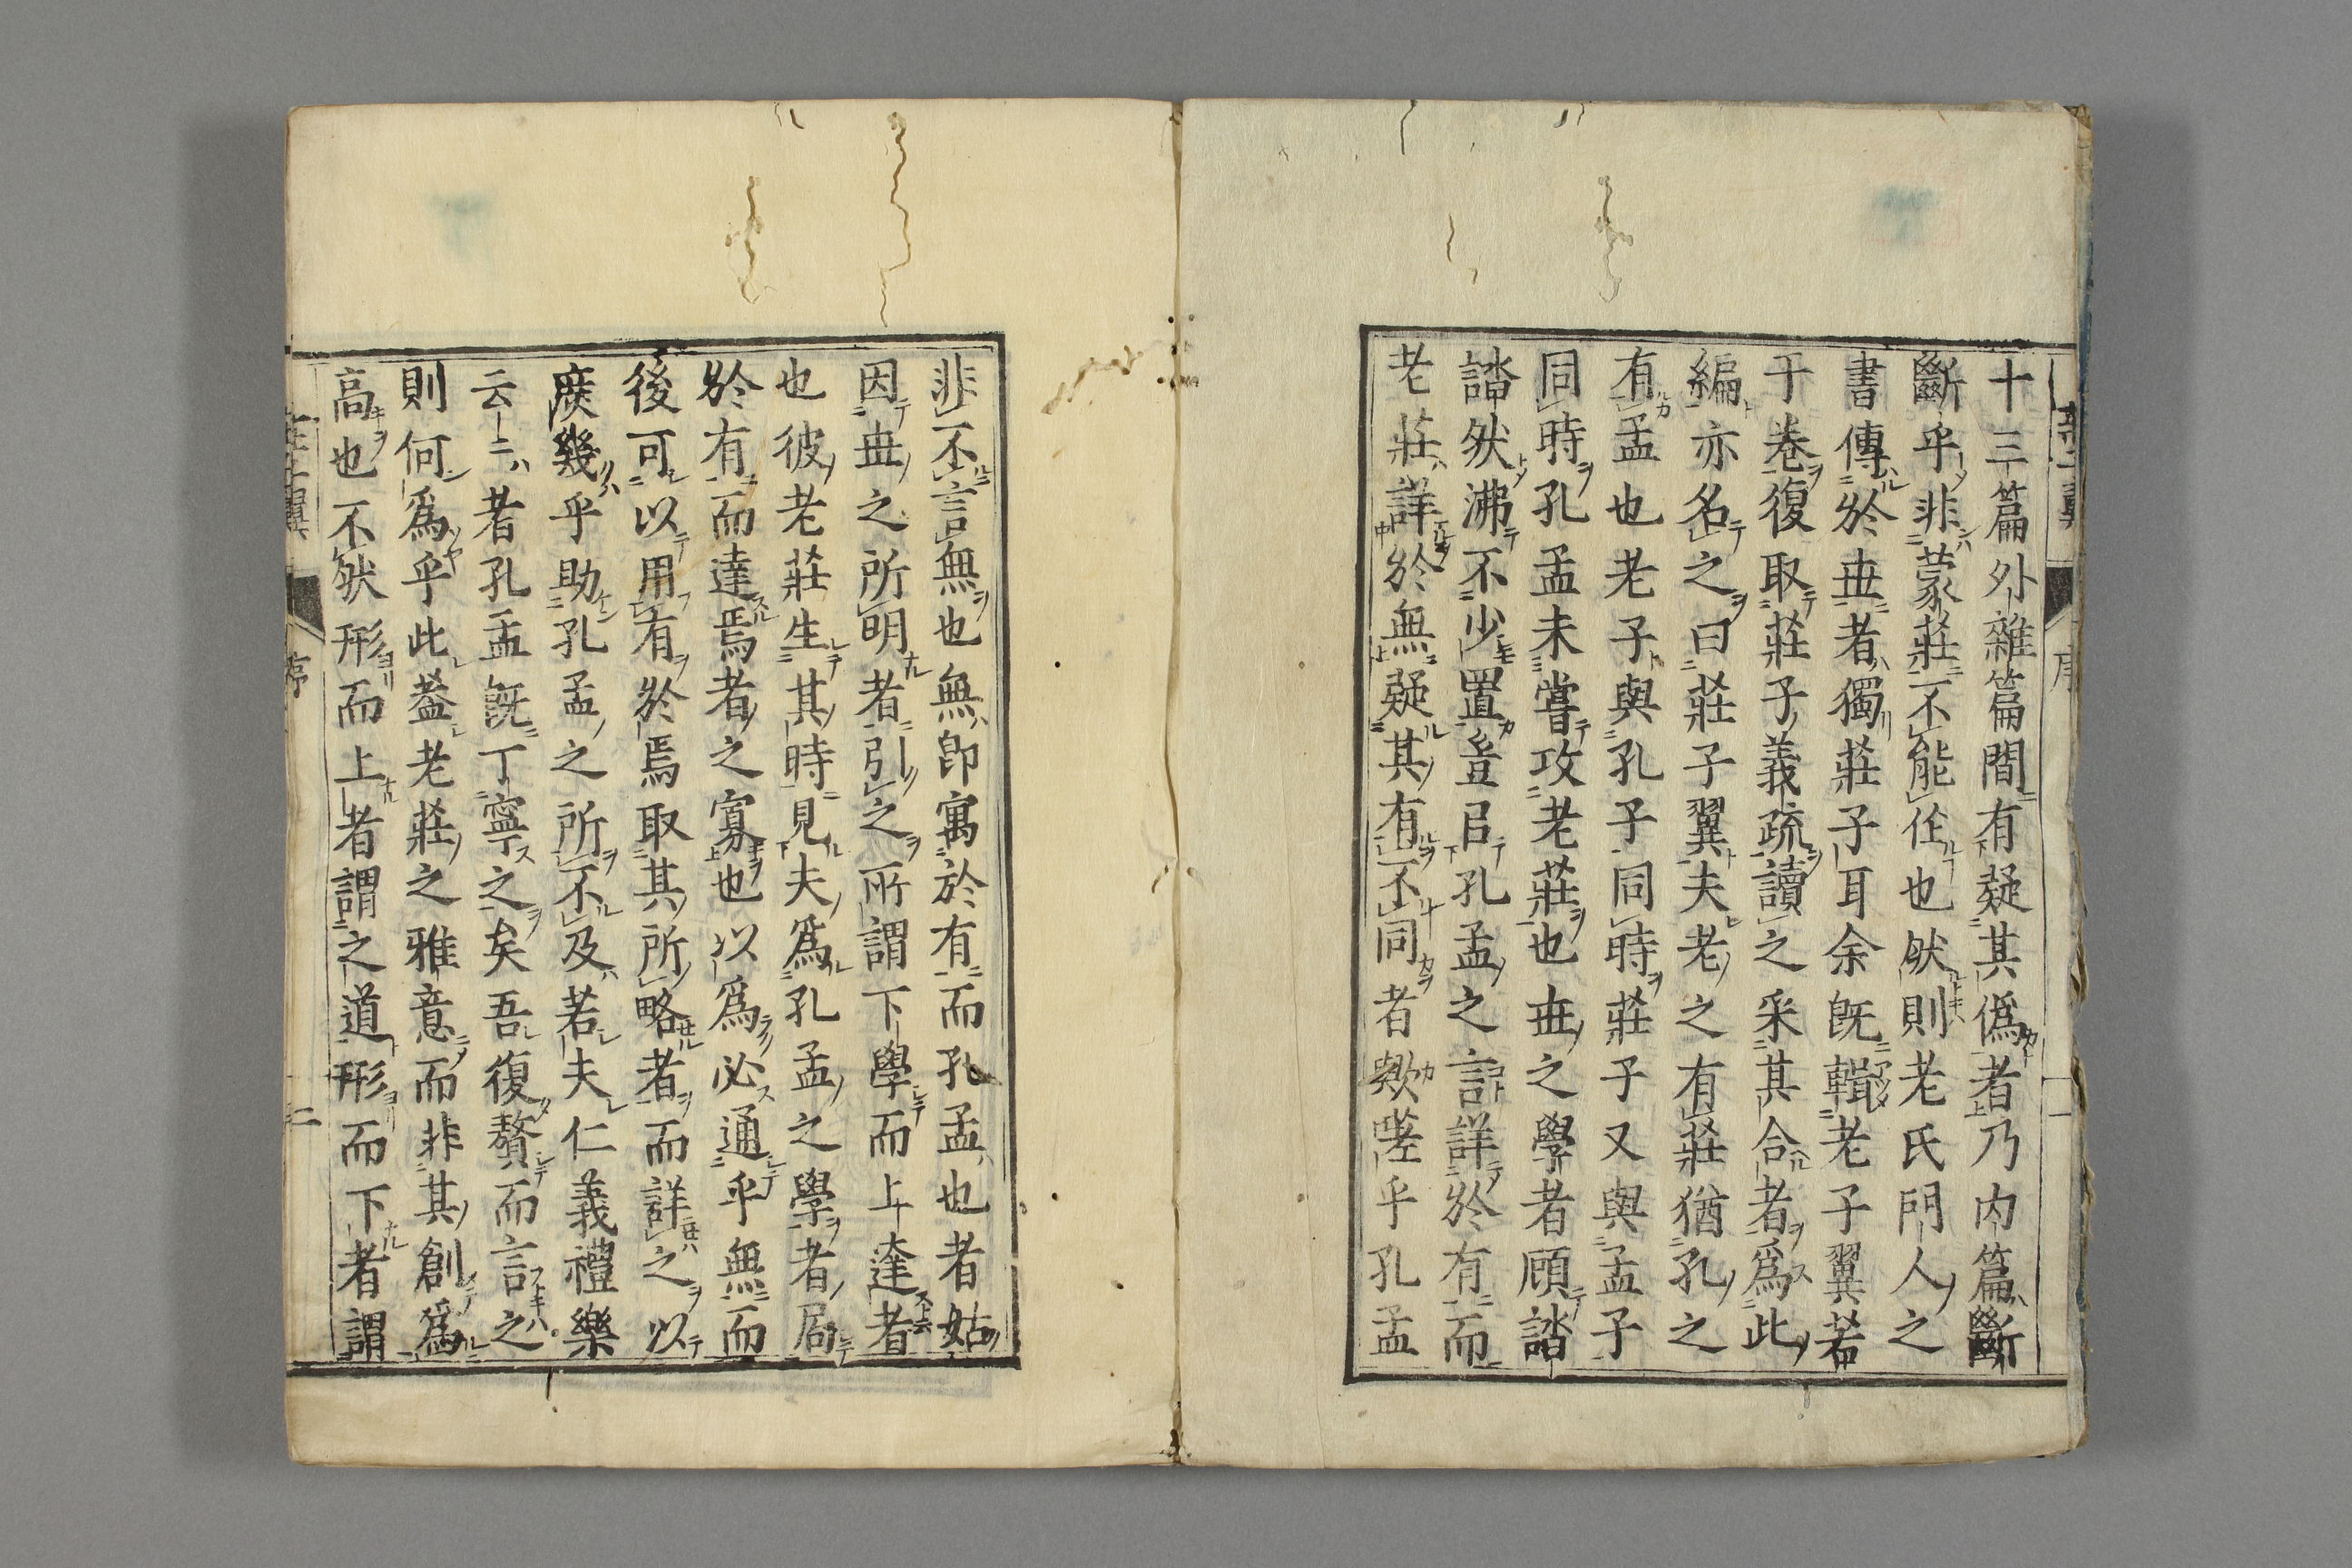 十三篇外雜篇間有疑其僞者乃内篇斷
斷乎非蒙莊不能作也然則老氏門人之
書傳於世者獨莊子耳余旣輯老子翼若
干卷復取莊子義疏讀之采其合者爲此
編亦名之曰莊子翼夫老之有莊猶孔之
有孟也老子與孔子同時莊子又與孟子
同時孔孟未嘗攻老莊也世之學者顧諮
諮然沸不少置豈㠯孔孟之言詳於有而
老莊詳於無疑其有不同者歟嗟乎孔孟
非不言無也無卽寓於有而孔孟也者姑
因世之所明者引之所謂下學而上達者
也彼老莊生其時見夫爲孔孟之學者局
於有而達焉者之寡也以爲必通乎無而
後可以用有於焉取其所略者而詳之以
庶幾乎助孔孟之所不及若夫仁義禮樂
云云者孔孟旣丁寧之矣吾復贅而言之
則何爲乎此葢老莊之雅意而非其創爲
高也不然形而上者謂之道形而下者謂
序
二